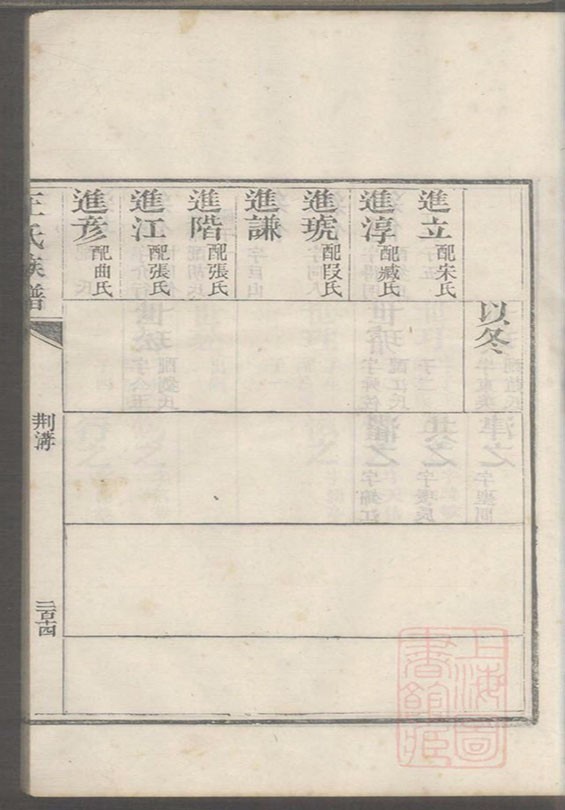 以冬
進立 配宋氏
進淳 配臧氏
進琥 配段氏
進謙
進階 配張氏
進江 配張氏
進彦 配曲氏
王氏族譜
荆溝
二百十四
上海圖書館藏